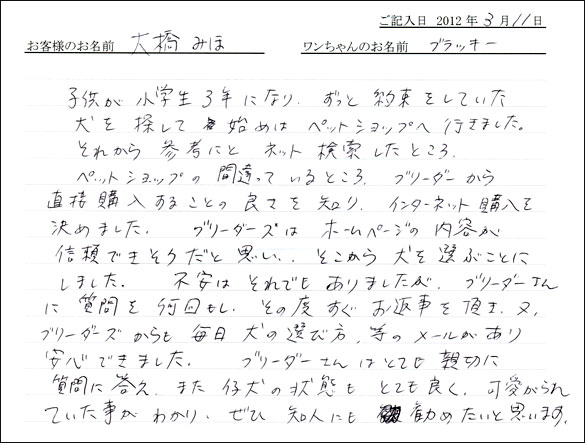 ご記入日 2012年3月11日
お客様のお名前 大橋 みほ ワンちゃんのお名前 ブラッキー
子供が小学生3年になり、ずっと約束をしていた
犬を探して 始めはペットショップへ行きました。
それから参考にとネット検索したところ、
ペットショップの間違っているところ、ブリーダーから
直接購入することの良さを知り、インターネット購入を
決めました。 ブリーダーズはホームページの内容が
信頼できそうだと思い、そこから犬を選ぶことに
しました。 不安はそれでもありましたが、ブリーダーさん
に質問を何回もし、その度すぐお返事を頂き、又、
ブリーダーズからも毎日犬の選び方、等のメールがあり
安心できました。 ブリーダーさんはとても親切に
質問に答え、また仔犬の状態もとても良く、可愛がられ
ていた事がわかり、ぜひ知人にも 勧めたいと思います。